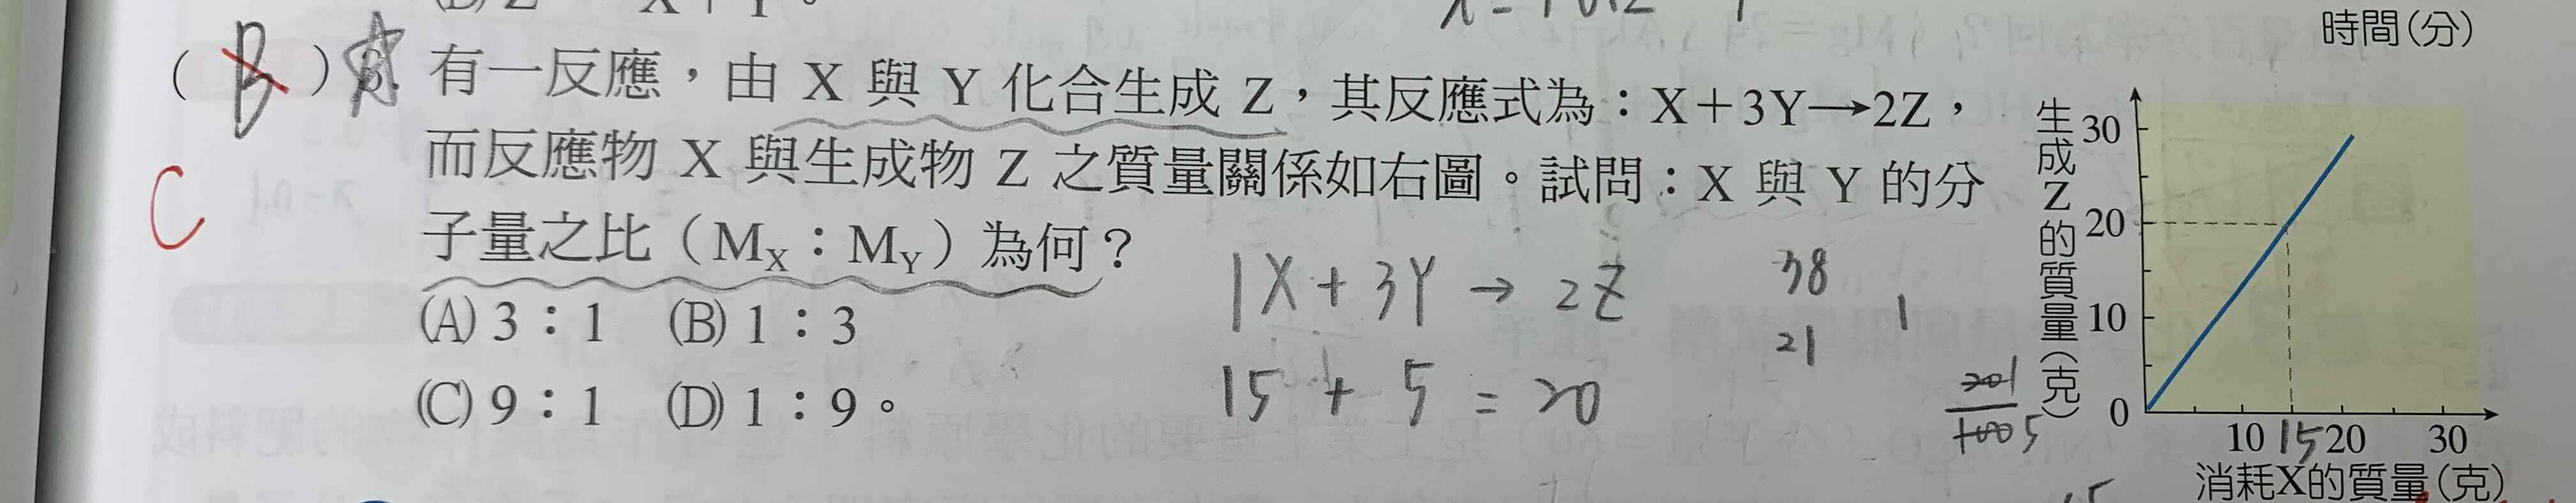 時間(分)
(B) 8. 有一反應，由 X 與 Y 化合生成 Z，其反應式為：X＋3Y→2Z，
而反應物 X 與生成物 Z 之質量關係如右圖。試問：X 與 Y 的分
子量之比（M_X：M_Y）為何？
(A) 3：1 (B) 1：3
(C) 9：1 (D) 1：9。
C
1X + 3Y → 2Z
15 + 5 = 20
38
21
1
生成Z的質量(克)
30
20
10
0
10 15 20 30
消耗X的質量(克)